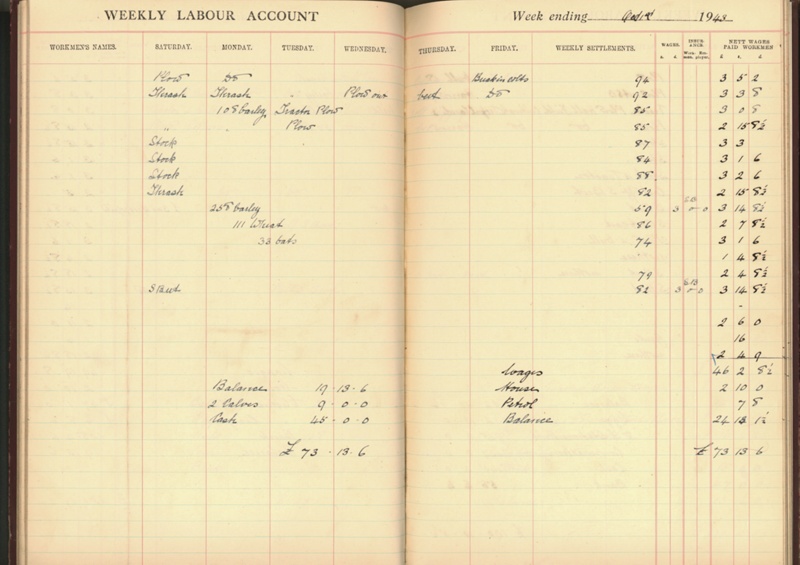 WEEKLY LABOUR ACCOUNT Week ending Oct 1st 1943
WORKMEN'S NAMES. SATURDAY. MONDAY. TUESDAY. WEDNESDAY. THURSDAY. FRIDAY. WEEKLY SETTLEMENTS. WAGES. INSURANCE. NETT WAGES PAID WORKMEN
s. d. £ s. d.
Plow Do Breakin colts 94 3 5 2
Thrash Thrash " Plow out beet Do 92 3 3 8
108 barley Tractor Plow 85 3 0 8
" " Plow 85 2 15 8½
Stock 87 3 3
Stock 84 3 1 6
Stock 88 3 2 6
Thrash 82 2 15 8½
238 barley 59 3 0 0 3 14 8½
111 Wheat 86 2 7 8½
33 oats 74 3 1 6
1 4 8½
79 2 4 8½
82 3 0 0 3 14 8½
-
2 6 0
16
2 4 9
Wages 46 2 8½
Balance 19 - 13 - 6 House 2 10 0
2 Calves 9 - 0 - 0 Petrol 7 8
Cash 45 - 0 - 0 Balance 24 13 1½
£ 73 - 13 - 6 £ 73 13 6